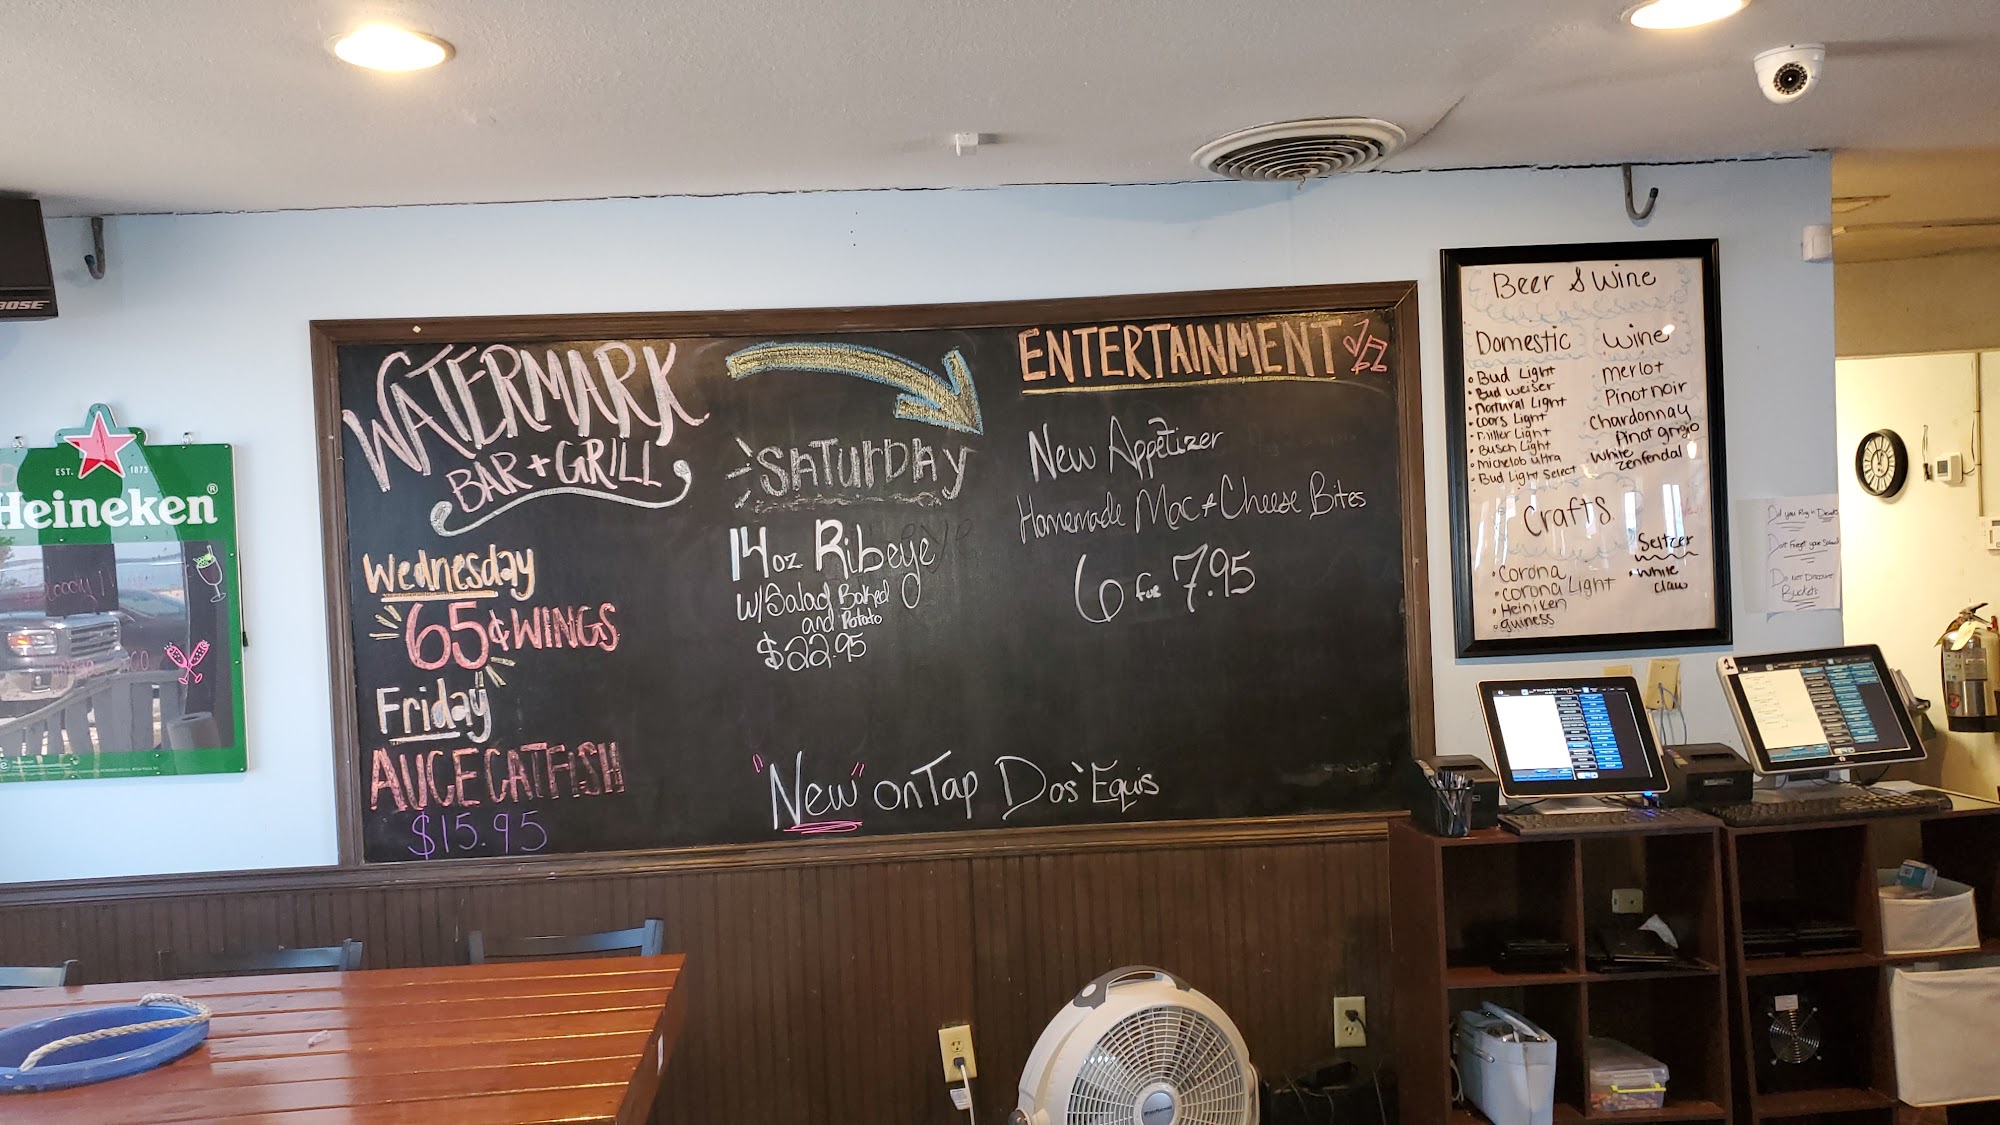 WATERMARK
BAR + GRILL
Wednesday
65¢ WINGS
Friday
AUCE CATFISH
$15.95
SATURDAY
14 oz Ribeye
w/Salad Baked
and Potato
$22.95
ENTERTAINMENT
New Appetizer
Homemade Mac + Cheese Bites
6 for 7.95
"New" on Tap Dos Equis
Beer & Wine
Domestic
• Bud Light
• Budweiser
• Natural Light
• Coors Light
• Miller Light
• Busch Light
• Michelob ultra
• Bud Light Select
Wine
Merlot
Pinot noir
Chardonnay
Pinot grigio
White
Zenfendal
Crafts
• Corona
• Corona Light
• Heiniken
• guiness
Seltzer
• White
Claw
Did you Ring in
Don't Forget your
Do not Discount
Buckets
EST. 1873
Heineken®
BOSE
1